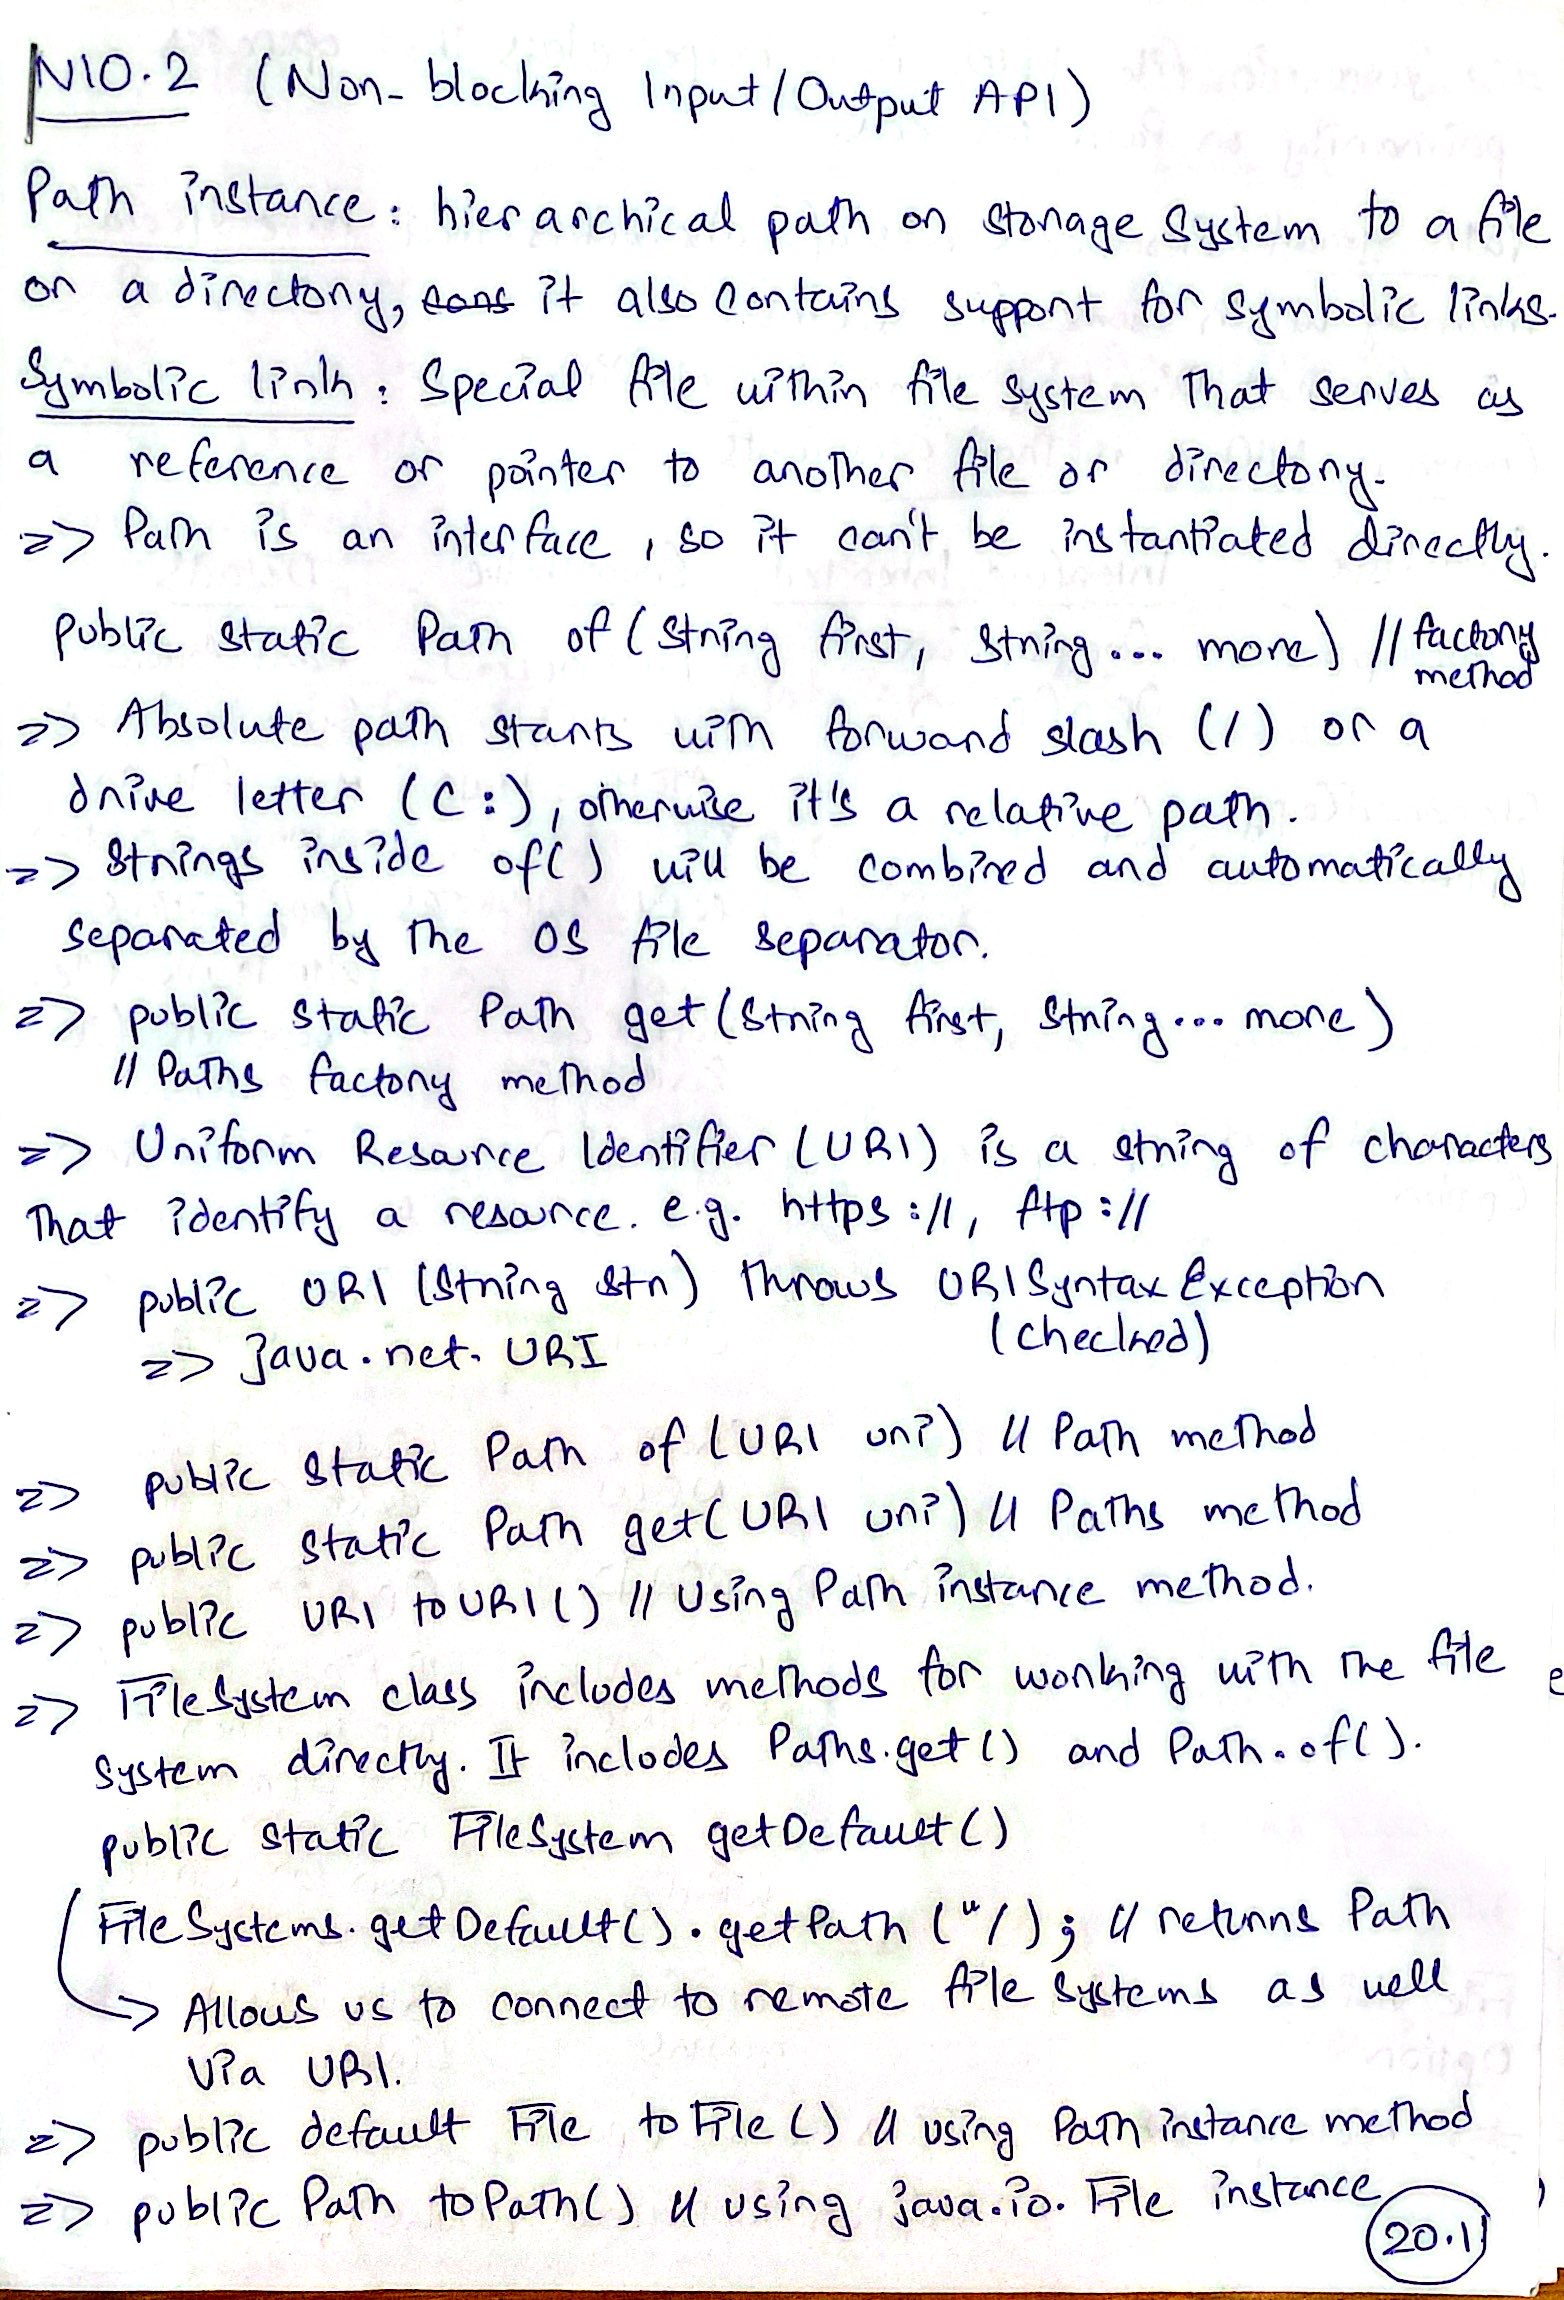 NIO.2 (Non-blocking Input/Output API)
Path instance: hierarchical path on storage system to a file
or a directory, cons it also contains support for symbolic links.
Symbolic link: Special file within file system that serves as
a reference or pointer to another file or directory.
=> Path is an interface, so it can't be instantiated directly.
public static Path of (String first, String... more) // factory
method
=> Absolute path starts with forward slash (/) or a
drive letter (C:), otherwise it's a relative path.
=> Strings inside of() will be combined and automatically
separated by the OS file separator.
=> public static Path get (String first, String... more)
// Paths factory method
=> Uniform Resource Identifier (URI) is a string of characters
that identify a resource. e.g. https://, ftp://
=> public URI (String str) throws URISyntaxException
(checked)
=> java.net.URI
=> public static Path of (URI uri) // Path method
=> public static Path get(URI uri) // Paths method
=> public URI toURI() // Using Path instance method.
=> FileSystem class includes methods for working with the file
system directly. It includes Paths.get() and Path.of().
public static FileSystem getDefault()
FileSystems.getDefault().getPath ("/); // returns Path
-> Allows us to connect to remote file systems as well
via URI.
=> public default File toFile() // using Path instance method
=> public Path toPath() // using java.io.File instance
20.1